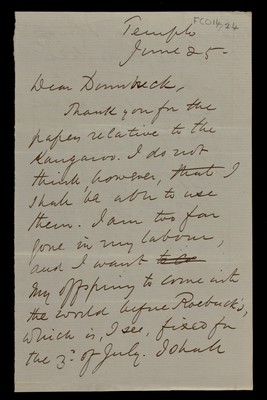 FCO14, 24
Temple
June 25-
Dear Dumbreck,
Thank you for the
papers relative to the
Kangaroo. I do not
think, however, that I
shall be able to use
them. I am too far
gone in my labour,
and I want
my offspring to come into
the world before Roebuck's,
which is, I see, fixed for
the 3d. of July. I shall